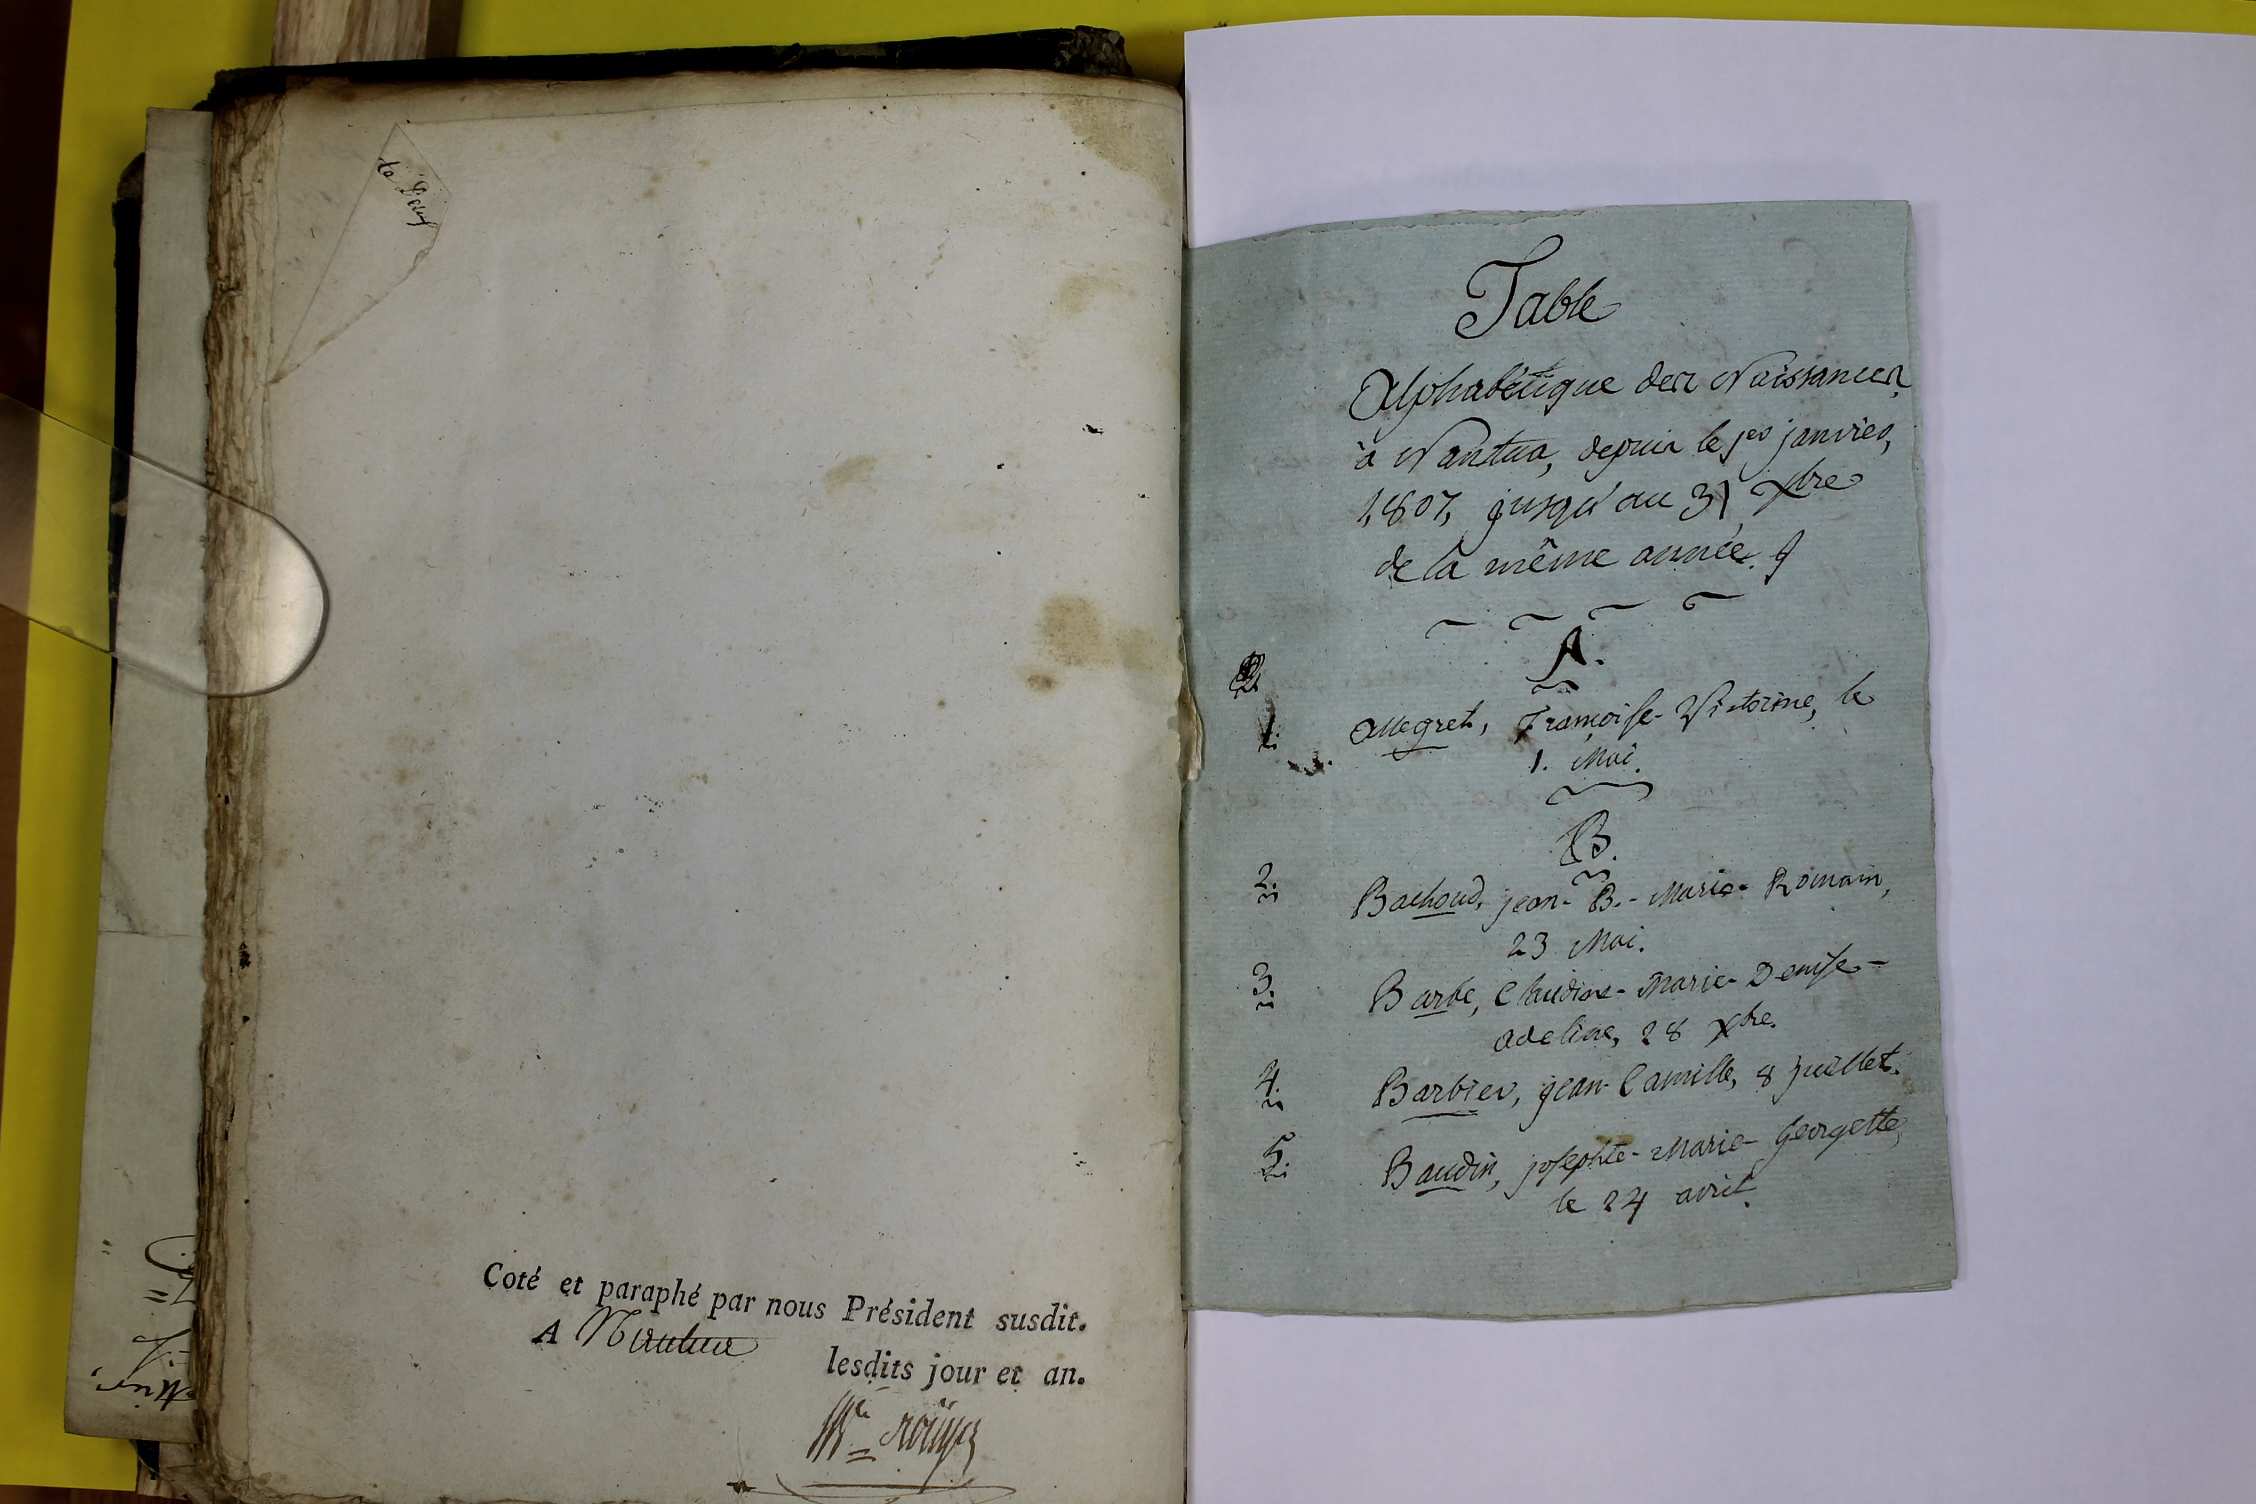 Coté et paraphé par nous Président susdit.
A Nantua
lesdits jour et an.
Table
Alphabétique des Naissances,
à Nantua, depuis le 1er janvier,
1,807, jusqu'au 31, Xbre
de la même année.
A.
1. Allegret, Françoise-Victorine, le
1. Mai.
B.
2. Bachoud, jean-B.-Marie-Romain,
23 Mai.
3. Barbe, Claudine-Marie-Denise-
adeline, 28 Xbre.
4. Barbier, jean-Camille, 8 juillet.
5. Baudin, josephte-Marie-Georgette,
le 24 avril.